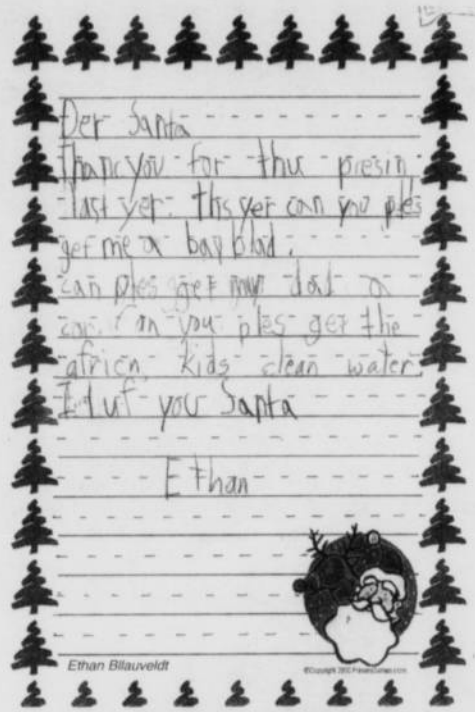 Der Santa
Thancyou for thu presin
last yer. ths yer can you ples
get me a bayblad.
can ples get my dad a
car. Can you ples get the
africn kids clean water.
I luf you Santa
Ethan
Ethan Bilauveldt